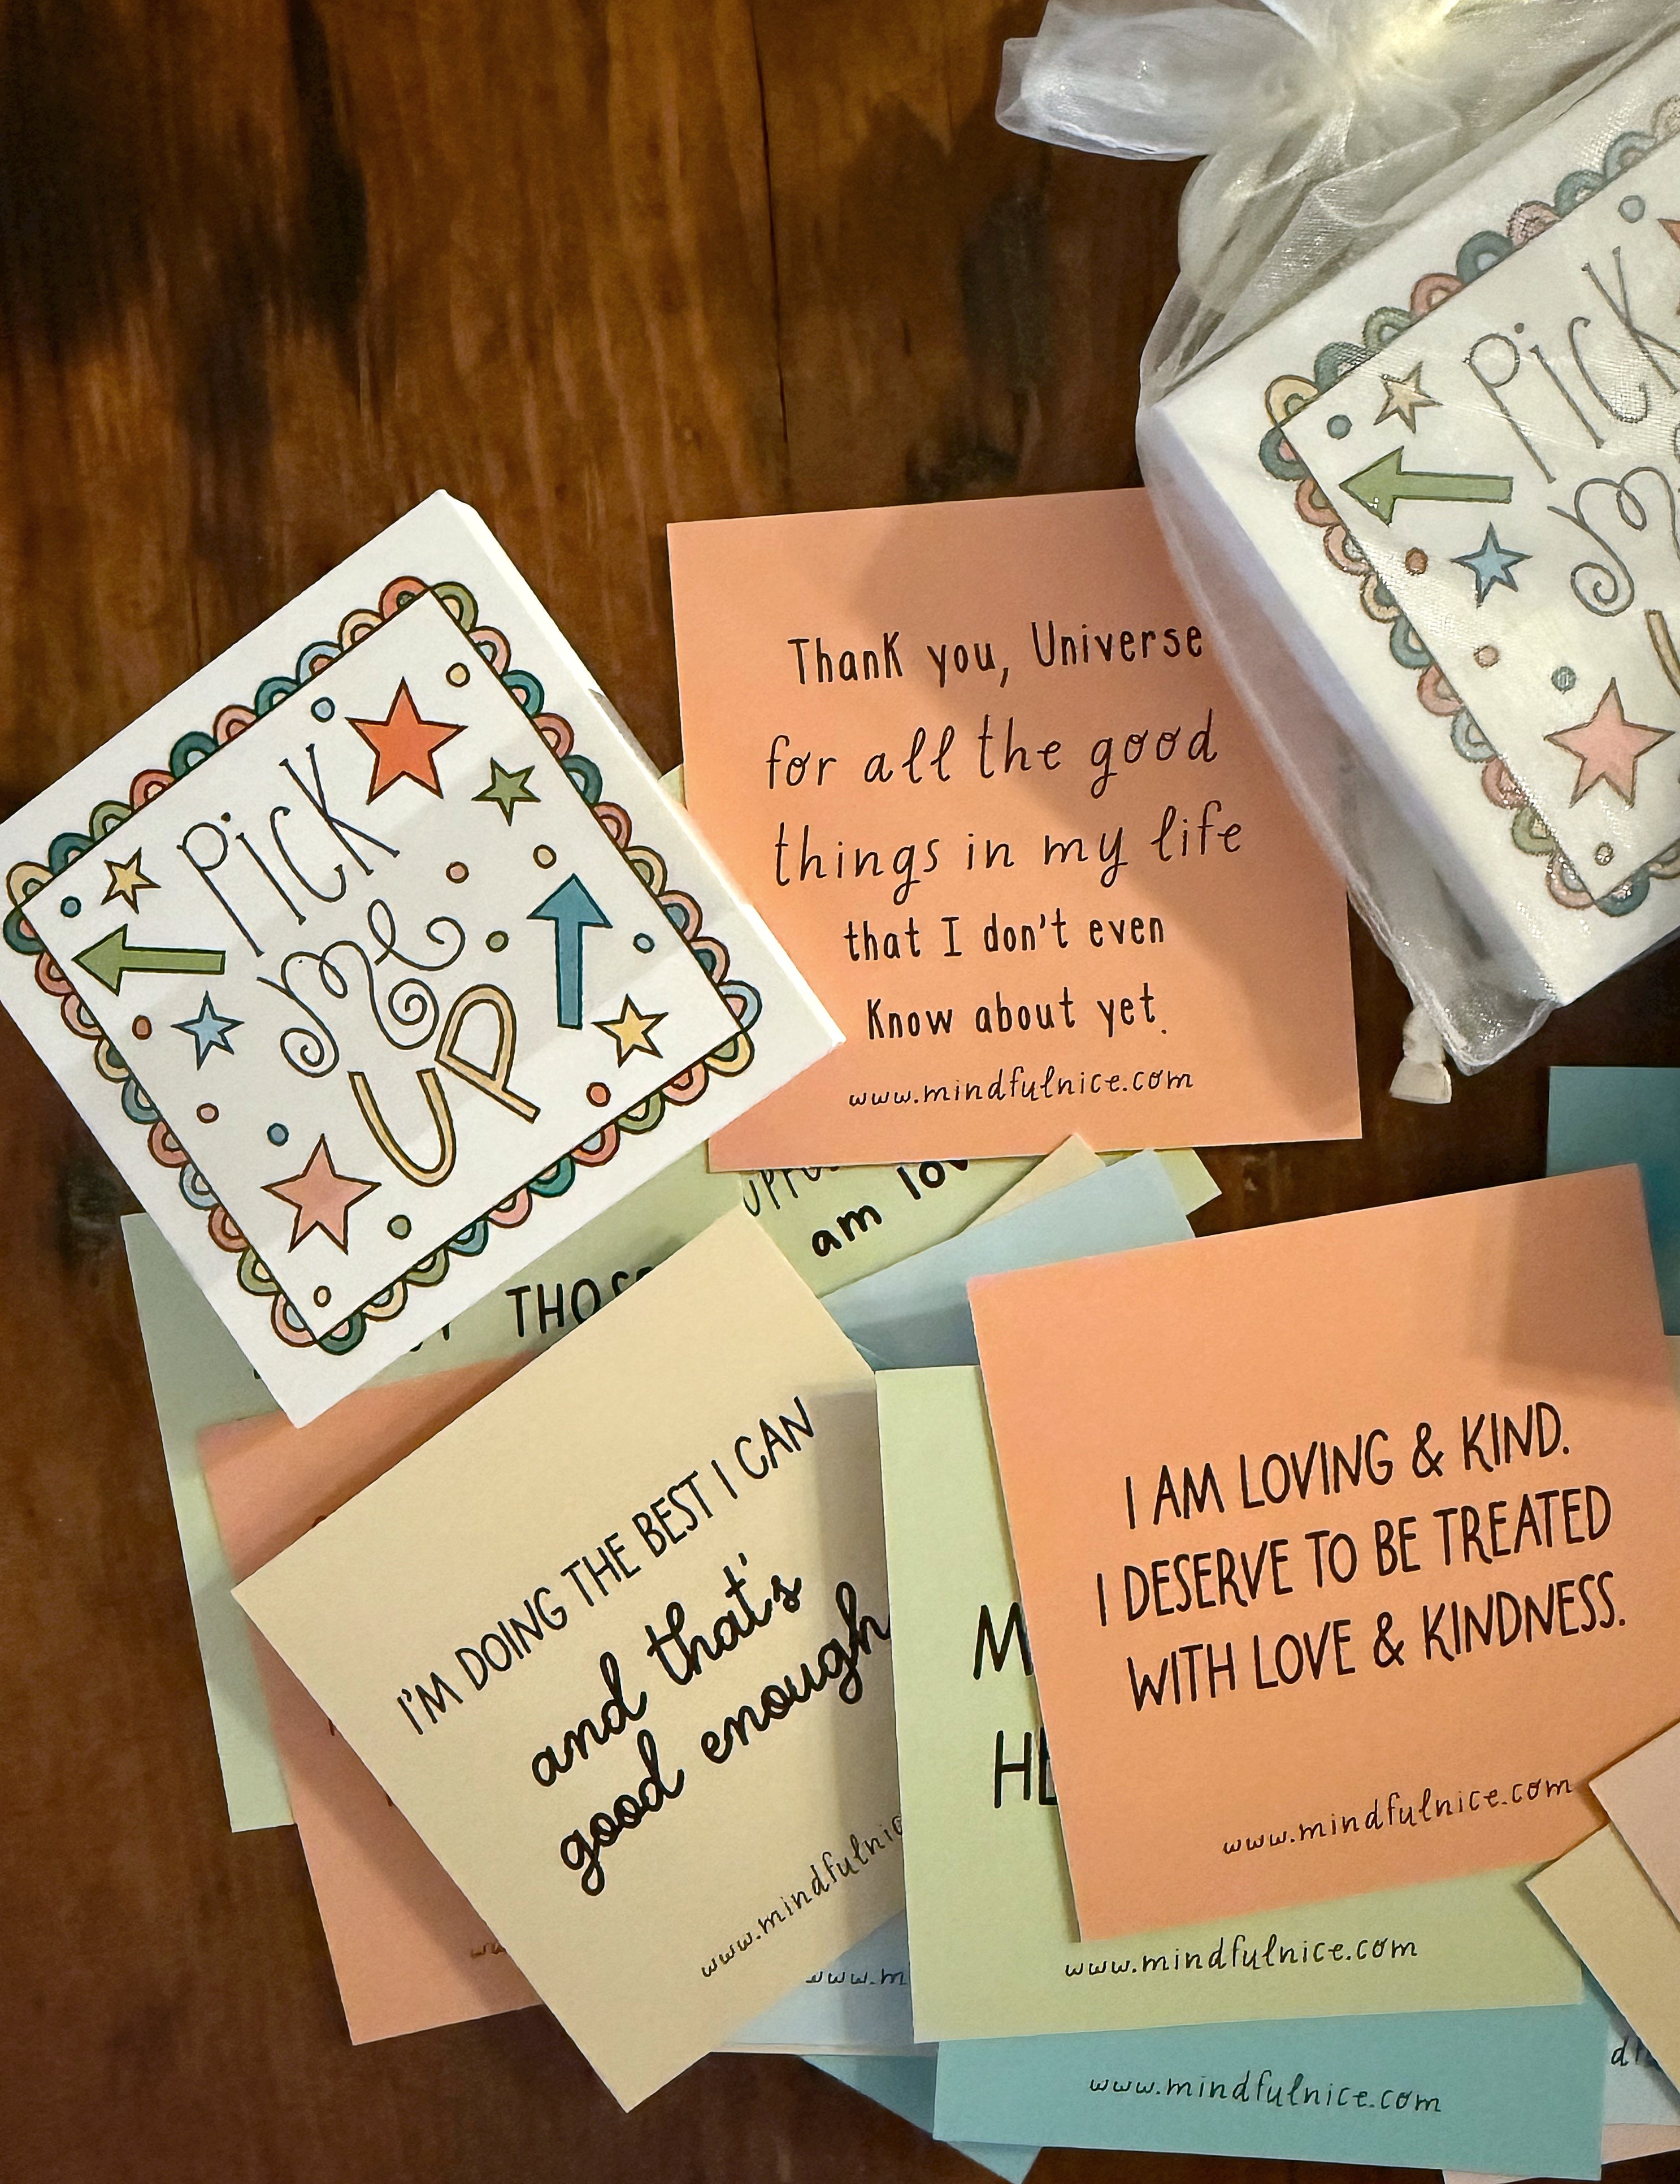 PiCK
me
UP
PiCK
Thank you, Universe
for all the good
things in my life
that I don't even
Know about yet.
www.mindfulnice.com
am
I'M DOING THE BEST I CAN
and that's
good enough
www.mindfulnic
I AM LOVING & KIND.
I DESERVE TO BE TREATED
WITH LOVE & KINDNESS.
www.mindfulnice.com
www.m
www.mindfulnice.com
www.mindfulnice.com